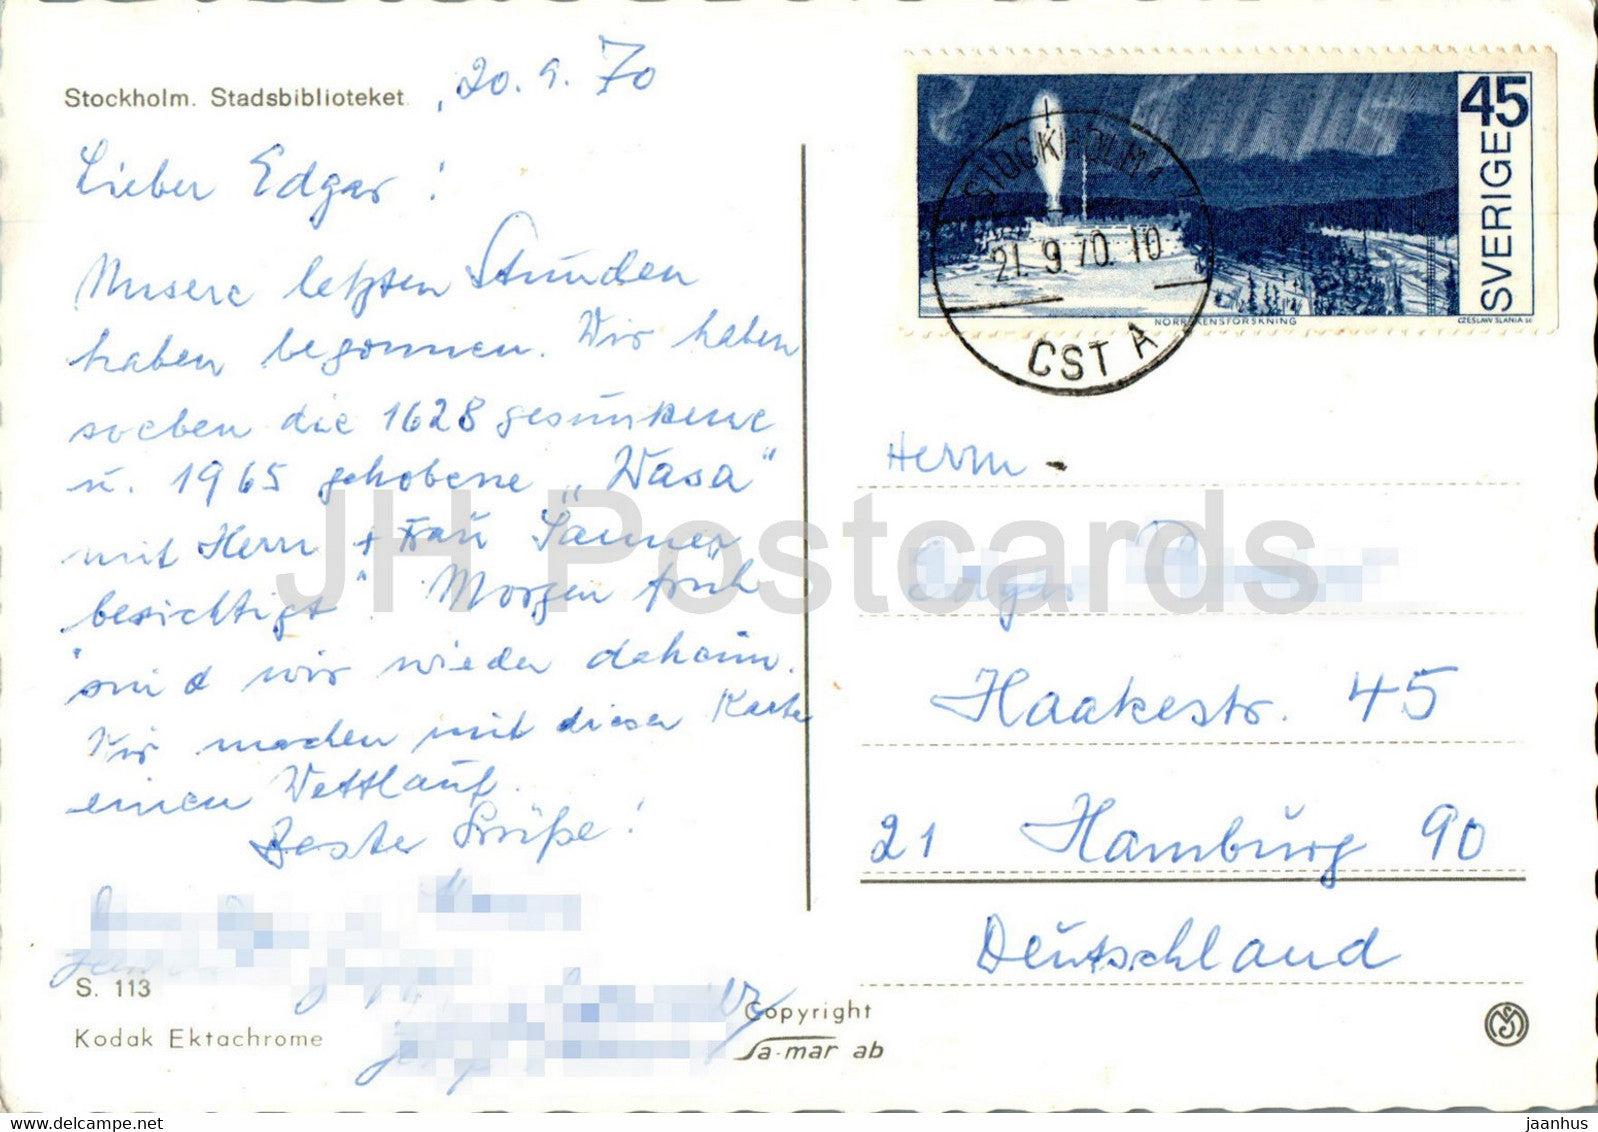 Stockholm. Stadsbiblioteket
20.9.70
Lieber Edgar!
Unsere letzten Stunden
haben begonnen. Wir haben
soeben die 1628 gesunkene
u. 1965 gehobene „Wasa"
mit Herrn + Frau Sanner
besichtigt. Morgen früh
sind wir wieder daheim.
Wir machen mit dieser Karte
einen Wettlauf.
Beste Grüße!
S. 113
Kodak Ektachrome
Copyright
Sa-mar ab
45
SVERIGE
NORRSKENSFORSKNING
CZESLAW SLANIA sc
STOCKHOLM 1
21.9.70.10
CST A
Herrn
Edgar
Haakestr. 45
21 Hamburg 90
Deutschland
JH Postcards
delcampe.net
jaanhus